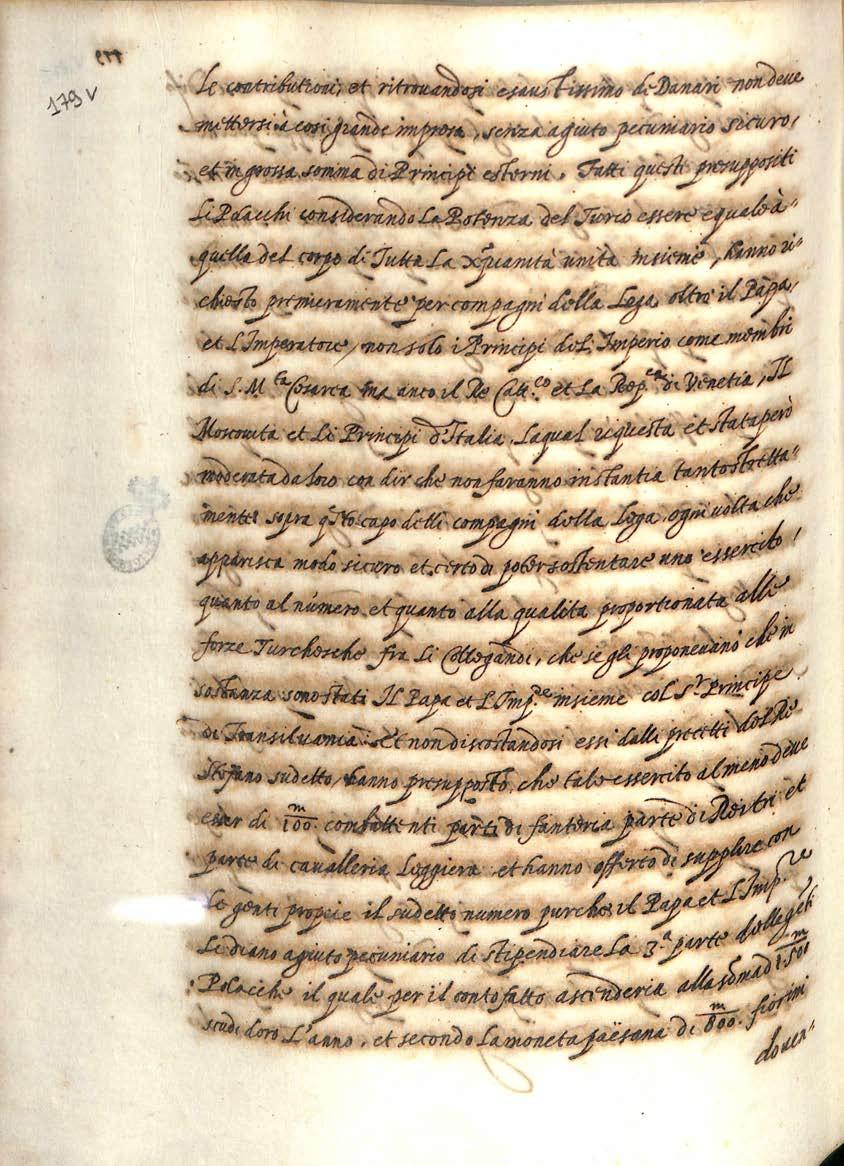 179 v
Le contributioni, et ritrovandosi esaustissimo de Danari non deve
mettersi à cosi grande impresa, senza agiuto pecuniario sicuro,
et in grossa somma di Principi esterni. Fatti questi presuppositi
Li Polacchi considerando La Potenza del Turco essere equale à
quella del corpo di Tutta La Xp̃uanità unita insieme, hanno ri=
chiesto premieramente per compagni della Lega oltre il Papa,
et L'Imperatore, non solo i Principi del Imperio come membri
di S. M.ta Cesarea ma anco il Re Catt.co et La Rep.ca di Venetia, Il
Moscovita et Li Principi d'Italia. Laqual riquesta et stata però
moderata da loro con dir che non faranno instantia tanto stretta=
mente sopra q̃sto capo delli compagni della Lega ogni volta che
apparisca modo sicuro et certo di poter sostentare uno essercito,
quanto al número et quanto alla qualità proportionata alle
forze Turchesche fra Li Collegandi, che se gli proponevano che in
sostanza sono stati Il Papa et L'Imp.re insieme col S.r Principe
di Transilvania: Et non discostandosi essi dalli precetti del Re
Stefano sudetto, hanno presupposto, che tale essercito al meno deve
esser di 100.m combattenti parte di fanteria parte di Reistri et
parte di cavalleria Leggiera et hanno offerto di supplire con
Le genti proprie il sudetto numero purche il Papa et L'Imp.re
Li diano agiuto pecuniario di stipendiare La 3.a parte delle gẽti
Polacche il quale per il conto fatto ascenderia alla sõma di 1500m
scudi d'oro L'anno, et secondo La moneta paësana di 800.m fiorini
doven=